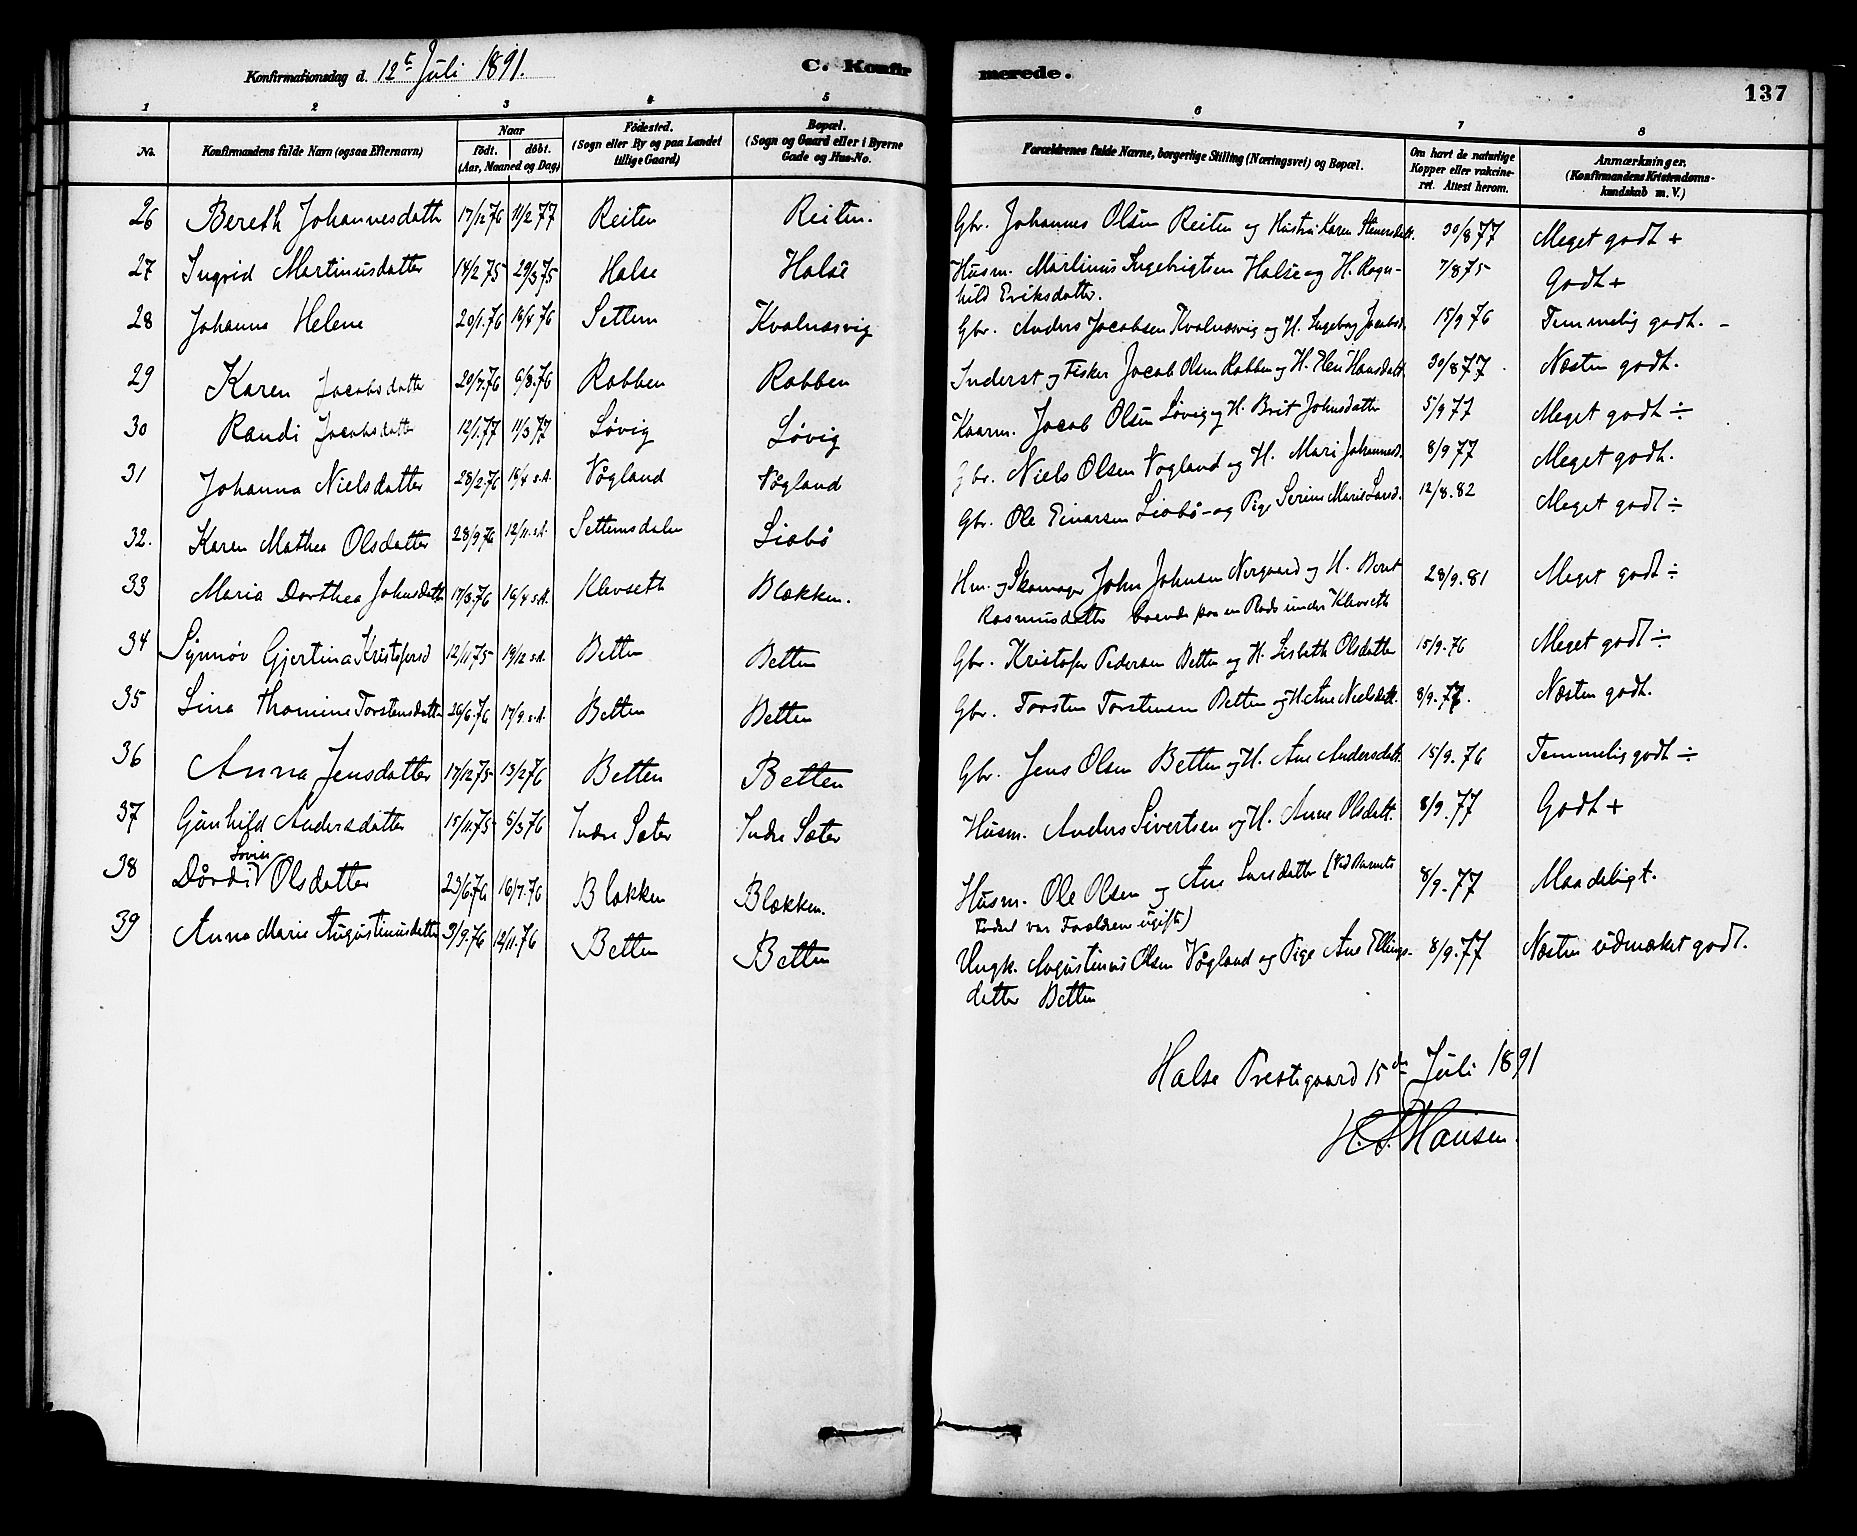 Konfirmationsdag d. 12te Juli 1891. C. Konfirmerede. 137
1 2 3 4 5 6 7 8
No. Konfirmandens fulde Navn (ogsaa Efternavn) Naar födt. döbt. (Aar, Maaned og Dag) Födested. (Sogn eller By og paa Landet tillige Gaard) Bopæl. (Sogn og Gaard eller i Byerne Gade og Hus-No. Forældrenes fulde Navne, borgerlige Stilling (Næringsvei) og Bopæl. Om havt de naturlige Kopper eller vakcineret. Attest herom. Anmærkninger. (Konfirmandens Kristendomskundskab m. V.)
26 Bereth Johannesdatt 17/12 76 11/2 77 Reiten Reiten. Gbr. Johannes Olsen Reiten og Hustru Karen Steversdatt. 30/8 77 Meget godt +
27 Ingrid Martinusdatter 14/2 75 29/3 75 Halse Halse Husm. Martinus Ingebrigtsen Halse og H. Ragn-
hild Eriksdatter. 7/8 75 Godt +
28 Johanna Helene 20/1.76 18/4 76 Settem Kvalnæsvig Gbr. Anders Jacobsen Kvalnæsvig og H. Ingeborg Jacobsd. 15/9 76 Temmelig godt. -
29 Karen Jacobsdatter 20/7.76 6/8.76 Rabben Rabben Inderst og Fisker Jacob Olsen Rabben og H. Hansdatt. 30/8 77 Næsten godt.
30 Randi Jacobsdatter 12/1.77 11/3 77 Løvig Løvig Kaarm. Jacob Olsen Løvig og H. Brit Johnsdatter 5/9 77 Meget godt ÷
31 Johanna Nielsdatter 28/2.76 18/4 s.A. Vågland Vågland Gbr. Niels Olsen Vogland og H. Mari Johannesd. 8/9 77 Meget godt.
32. Karen Mathea Olsdatter 28/9 76 12/11. s.A. Settemsdalen Liabö Gbr. Ole Einarsen Liabö - og Pige Serine Marie Larsd. 12/8.82 Meget godt ÷
33 Maria Dorthea Johnsdatt 17/3.76 16/4 s.A. Klevseth Blekken. Hm. og Skomager John Johnsen Nergaard og H. Berit
Rasmusdatter boende paa en Plads under Klevseth 28/9.81 Meget godt ÷
34 Synnöv Gjertina Kristofersd 12/11.75 19/12 s.A. Betten Betten Gbr. Kristofer Pedersen Betten og H. Lisbeth Olsdatter 15/9.76 Meget godt ÷
35 Lina Thomine Torstensdatter 26/6.76 17/9. s.A. Betten Betten Gbr. Torsten Torstensen Betten og H. Ane Nielsdatt. 8/9.77. Næsten godt.
36 Anna Jensdatter 17/12.75 13/2 76 Betten Betten Gbr. Jens Olsen Betten og H. Ane Andersdatt. 15/9.76 Temmelig godt ÷
37 Gunhild Andersdatter 15/11.75 5/3 76 Indre Sæter Indre Sæter Husm. Anders Sivertsen og H. Anne Olsdatt. 8/9.77 Godt +
38 Dårdi Lovise Olsdatter 23/6.76 16/7.76 Blekken Blekken. Husm. Ole Olsen og Ane Larsdatter (Ved Barnets
Födsel var Forældrene ugifte) 8/9.77 Maadeligt.
39 Anna Marie Augustinusdatter 3/9.76 12/11.76 Betten Betten Ungk. Augustinus Olsen Vågland og Pige Ane Ellings-
datter Betten 8/9.77 Næsten udmærket godt.
Halse Prestegaard 15de Juli 1891
Hansen.